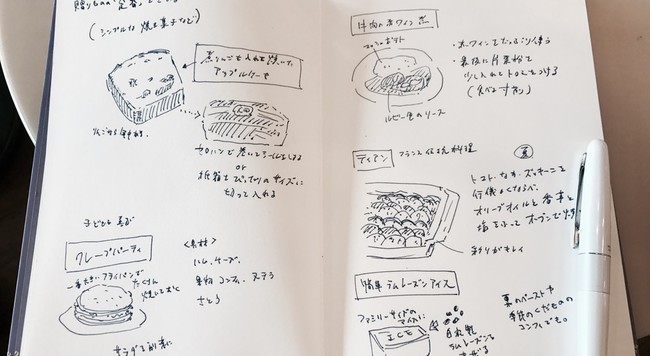 (シンプルな焼き菓子など)
煮りんごを入れて焼いた
アップルケーキ
セロハンで巻いてシールでとめる
or
紙箱をぴったりのサイズに
切って入れる
子どもも喜ぶ
クレープパーティ
一番大きいフライパンで
たくさん
焼いておく
<具材>
ハム、チーズ、
果物
さとう
サラダを前菜に
牛肉の赤ワイン煮
マッシュポテト
・赤ワインでたっぷり使う
・最後に片栗粉で
少し入れてトロみをつける
(食べやすい)
ルビー色のソース
ティアン フランス伝統料理
夏
トマト、なす、ズッキーニを
行儀よくならべ、
オリーブオイルと香草と
塩をふってオーブンで焼く
彩りがキレイ
簡単ラムレーズンアイス
ファミリーサイズの
アイスに
ICE
ラムレーズンを
栗のペーストや
季節のくだものの
コンフィでも。